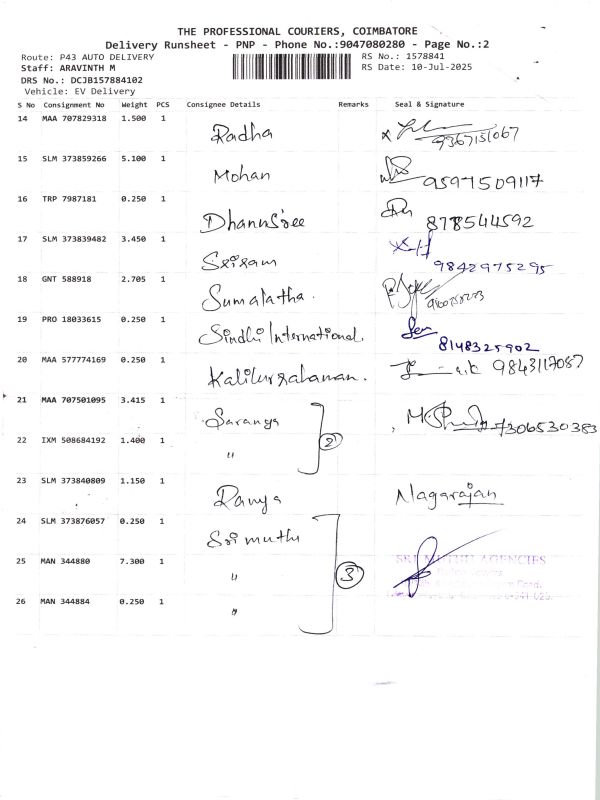 THE PROFESSIONAL COURIERS, COIMBATORE
Delivery Runsheet - PNP - Phone No.:9047080280 - Page No.:2
Route: P43 AUTO DELIVERY RS No.: 1578841
Staff: ARAVINTH M RS Date: 10-Jul-2025
DRS No.: DCJB157884102
Vehicle: EV Delivery
S No Consignment No Weight PCS Consignee Details Remarks Seal & Signature
14 MAA 707829318 1.500 1 Radha 9367151067
15 SLM 373859266 5.100 1 Mohan 9597509117
16 TRP 7987181 0.250 1 DhannSree 878544592
17 SLM 373839482 3.450 1 Sriram 9842975295
18 GNT 588918 2.705 1 Sumalatha.
19 PRO 18033615 0.250 1 Sindhi International. 8148325902
20 MAA 577774169 0.250 1 Kalilurrahaman. 9843117087
21 MAA 707501095 3.415 1 Saranya 7306530383
22 IXM 508684192 1.400 1 " 2
23 SLM 373840809 1.150 1 Ramya Nagarajan
24 SLM 373876057 0.250 1 Sri muthu
25 MAN 344880 7.300 1 " 3 AGENCIES
26 MAN 344884 0.250 1 "